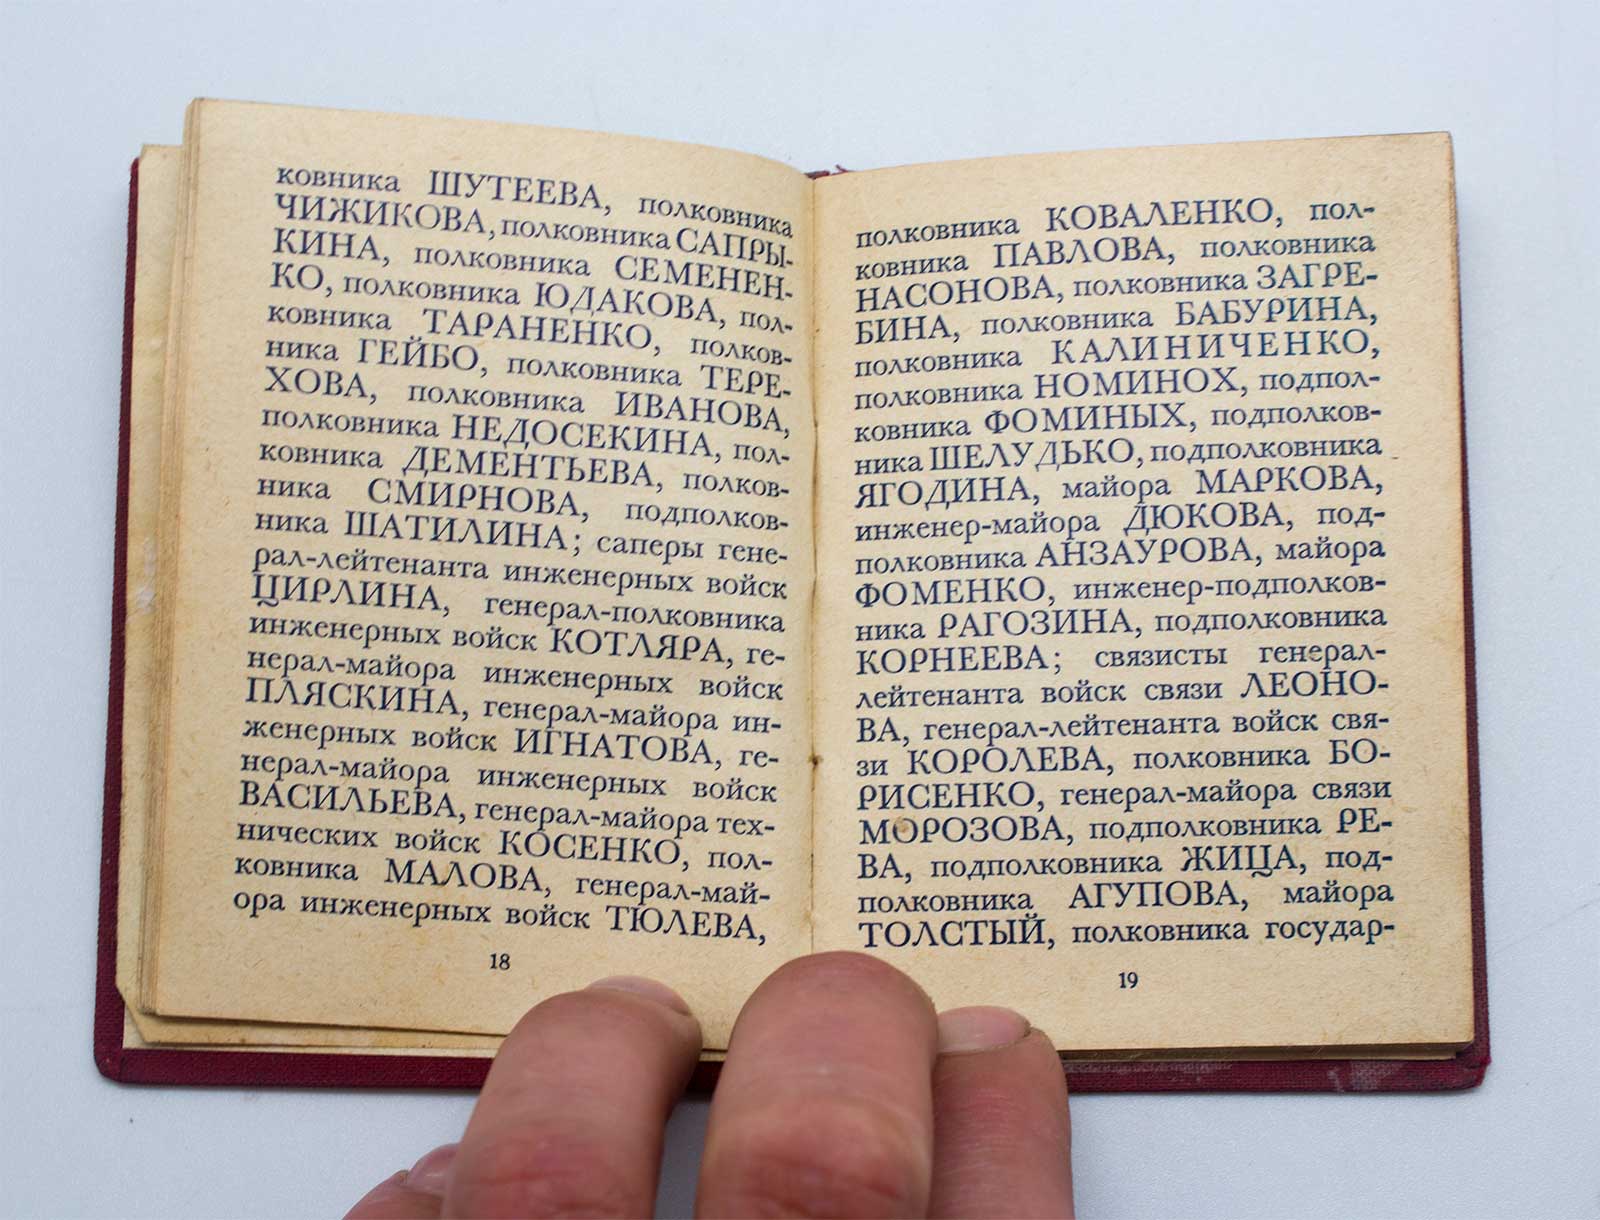 ковника ШУТЕЕВА, полковника
ЧИЖИКОВА, полковника САПРЫ-
КИНА, полковника СЕМЕНЕН-
КО, полковника ЮДАКОВА, пол-
ковника ТАРАНЕНКО, полков-
ника ГЕЙБО, полковника ТЕРЕ-
ХОВА, полковника ИВАНОВА,
полковника НЕДОСЕКИНА, пол-
ковника ДЕМЕНТЬЕВА, полков-
ника СМИРНОВА, подполков-
ника ШАТИЛИНА; саперы гене-
рал-лейтенанта инженерных войск
ЦИРЛИНА, генерал-полковника
инженерных войск КОТЛЯРА, ге-
нерал-майора инженерных войск
ПЛЯСКИНА, генерал-майора ин-
женерных войск ИГНАТОВА, ге-
нерал-майора инженерных войск
ВАСИЛЬЕВА, генерал-майора тех-
нических войск КОСЕНКО, пол-
ковника МАЛОВА, генерал-май-
ора инженерных войск ТЮЛЕВА,
18
полковника КОВАЛЕНКО, пол-
ковника ПАВЛОВА, полковника
НАСОНОВА, полковника ЗАГРЕ-
БИНА, полковника БАБУРИНА,
полковника КАЛИНИЧЕНКО,
полковника НОМИНОХ, подпол-
ковника ФОМИНЫХ, подполков-
ника ШЕЛУДЬКО, подполковника
ЯГОДИНА, майора МАРКОВА,
инженер-майора ДЮКОВА, под-
полковника АНЗАУРОВА, майора
ФОМЕНКО, инженер-подполков-
ника РАГОЗИНА, подполковника
КОРНЕЕВА; связисты генерал-
лейтенанта войск связи ЛЕОНО-
ВА, генерал-лейтенанта войск свя-
зи КОРОЛЕВА, полковника БО-
РИСЕНКО, генерал-майора связи
МОРОЗОВА, подполковника РЕ-
ВА, подполковника ЖИЦА, под-
полковника АГУПОВА, майора
ТОЛСТЫЙ, полковника государ-
19